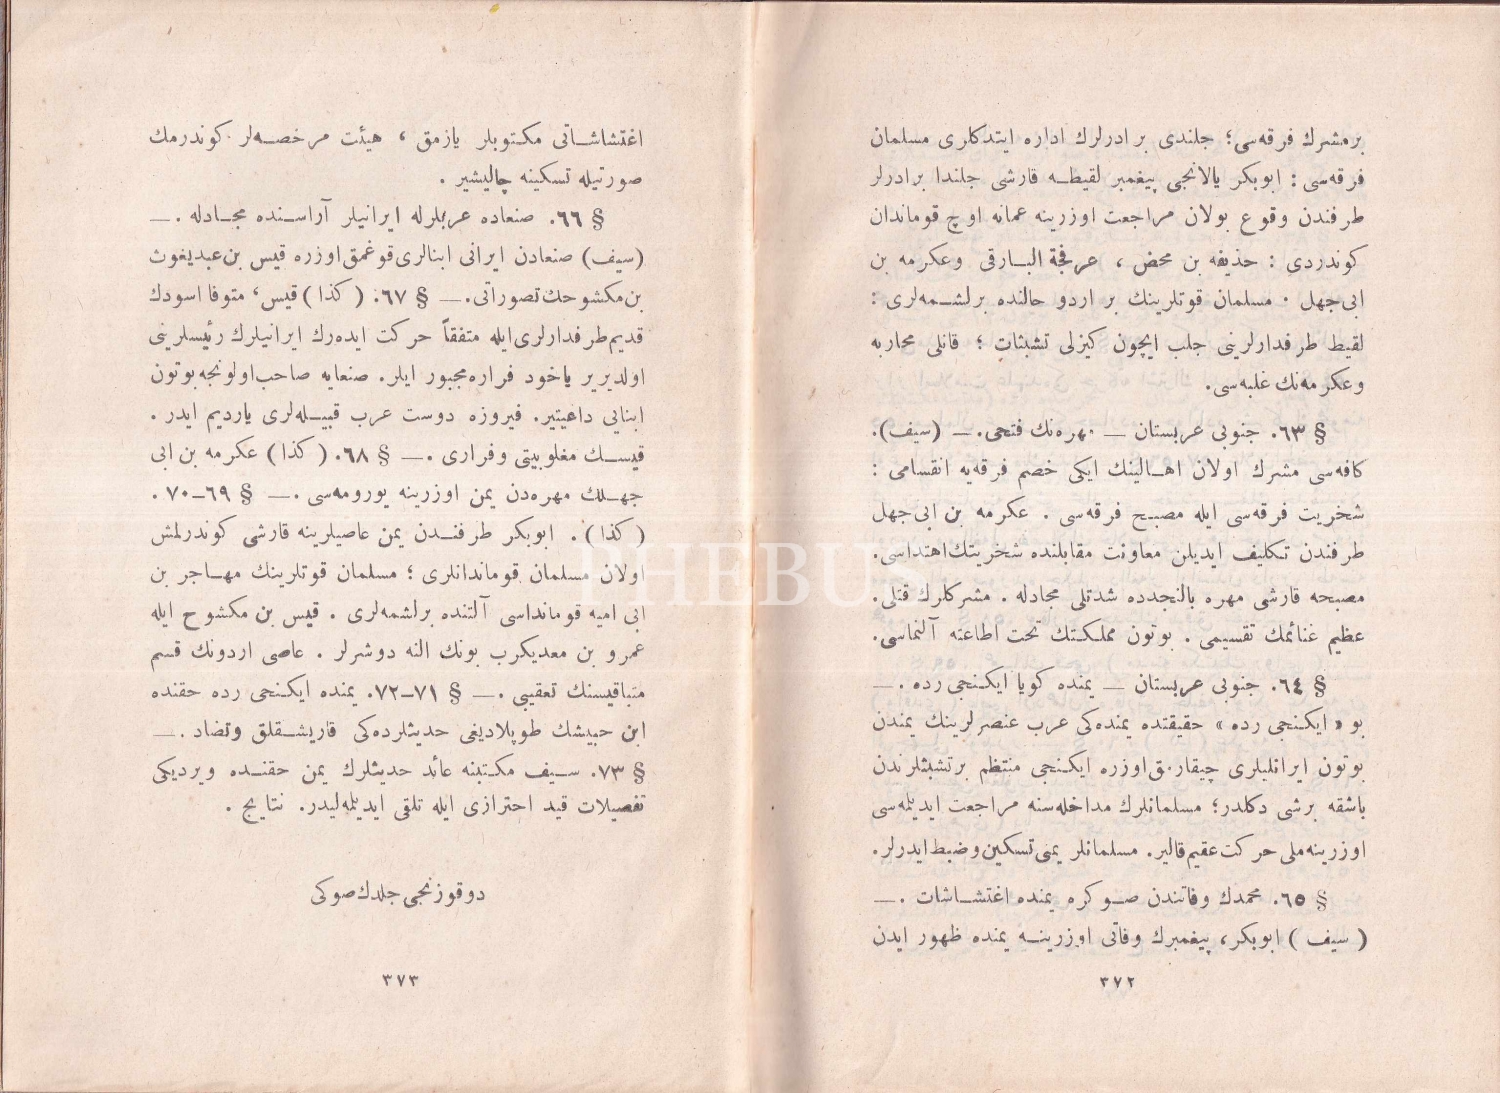 برمشرك فرقه‌سی؛ جلندی برادرلرك اداره ایتدكلری مسلمان
فرقه‌سی : ابوبكر یالانجی پیغمبر لقیطـه قارشی جلندا برادرلر
طرفندن وقوع بولان مراجعت اوزرینه عمانه اوچ قوماندان
كوندردی : حذیفه بن محض ، عرفجة البـارقی وعكرمه بن
ابی‌جهل . مسلمان قوتلرینك بر اردو حالنده برلشـمه‌لری :
لقیط طرفدارلرینی جلب ایچون كیزلی تشبثات ؛ قانلی محاربه
وعكرمه‌نك غلبه‌سی.
§ ٦٣. جنوبی عربستان — مهره‌نك فتحی.— (سیف).
كافه‌سی مشرك اولان اهـالینك ایكی خصم فرقه‌یه انقسامی :
شخریت فرقه‌سی ایله مصبح فرقه‌سی . عكرمه بن ابی‌جهل
طرفندن تكلیف ایدیلن معاونت مقابلنده شخریتك‌اهتداسی.
مصبحه قارشی مهره بالنجدده شدتلی مجادله . مشركلرك قتلی.
عظیم غنائمك تقسیمی . بوتون مملكتك تحت اطاعته آلنماسی.
§ ٦٤. جنوبی عربستان — یمنده كویا ایكنجی رده .—
بو « ایكنجی رده » حقیقتده یمنده‌كی عرب عنصرلرینك یمندن
بوتون ایرانلیلری چیقارمق‌اوزره ایكنجی منتظم برتشبثلرندن
باشقه برشی دكلدر؛ مسلمانلرك مداخله‌سنه مراجعت ایدیله‌سی
اوزرینه‌ملی حركت‌عقیم‌قالیر. مسلمانلر یمنی‌تسكین‌وضبط‌ایدرلر.
§ ٦٥. محمدك وفاتندن صـوكره یمنده اغتشـاشات .—
( سیف ) ابوبكر، پیغمبرك وفاتی اوزرینـه یمنده ظهور ایدن
٣٧٢
اغتشاشـاتی مكـتوبلر یازمق ، هیئت مرخصـه‌لر كوندرمك
صورتیله تسكینه چالیشیر .
§ ٦٦. صنعاده عربلرله ایرانیلر آراسـنده مجـادله .—
(سیف) صنعادن ایرانی ابنالری‌قوغمق‌اوزره قیس بن‌عبدیغوث
بن‌مكشوحك‌تصوراتی.— § ٦٧. ( كذا ) قیس، متوفا اسودك
قدیم‌طرفدارلری‌ایله متفقاً حركت ایده‌رك ایرانیلرك رئیسلرینی
اولدیریر یاخود فراره‌مجبور ایلر. صنعایه صاحب‌اولونجه‌بوتون
ابنایی داغیتیر. فیروزه دوست عرب قبیـله‌لری یاردیم ایدر .
قیسـك مغلوبیتی وفراری .— § ٦٨. ( كذا ) عكرمه بن ابی
جهـلك مهره‌دن یمن اوزرینه یورومه‌سی .— § ٦٩–٧٠ .
( كذا ) . ابوبكر طرفنـدن یمن عاصیلرینه قارشی كوندرلمش
اولان مسلمان قوماندانلری ؛ مسلمان قوتلرینك مهـاجر بن
ابی امیه قومانداسی آلتنده برلشمه‌لری . قیس بن مكشوح ایله
عمرو بن معدیكرب بونك النه دوشرلر . عاصی اردونك قسم
متباقیسنك تعقیبی .— § ٧١–٧٢. یمنده ایكـنجی رده حقنده
ابن حبیشك طوپلادیغی حدیثلرده‌كی قاریشـقلق وتضاد .—
§ ٧٣. سـیف مكـتبنه عائد حدیثلرك یمن حقنـده ویردیكی
تفصیلات قید احترازی ایله تلقی ایدیلمه‌لیدر. نتایج .
دوقوزنجی جلدك صوكی
٣٧٣
PHEBUS